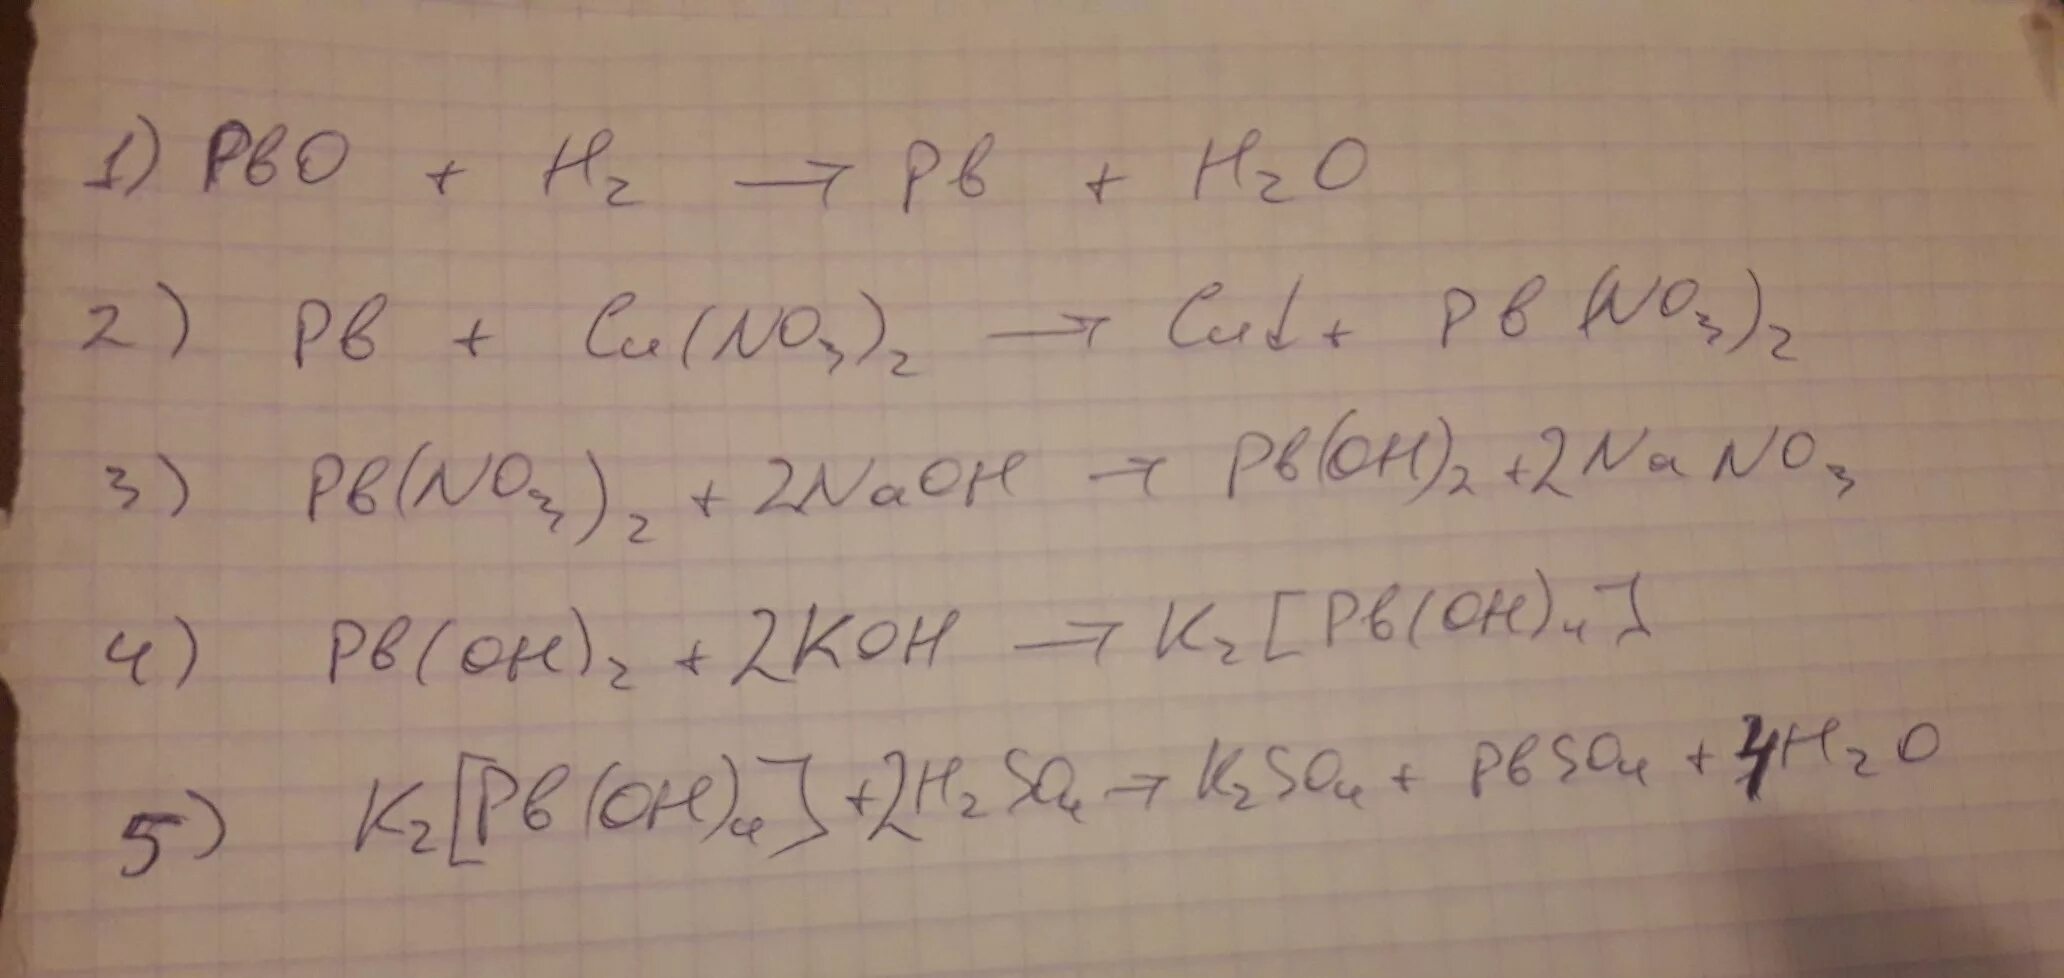 1) PbO + H₂ → Pb + H₂O
2) Pb + Cu(NO₃)₂ → Cu↓ + Pb(NO₃)₂
3) Pb(NO₃)₂ + 2NaOH → Pb(OH)₂ + 2NaNO₃
4) Pb(OH)₂ + 2KOH → K₂[Pb(OH)₄]
5) K₂[Pb(OH)₄] + 2H₂SO₄ → K₂SO₄ + PbSO₄ + 4H₂O